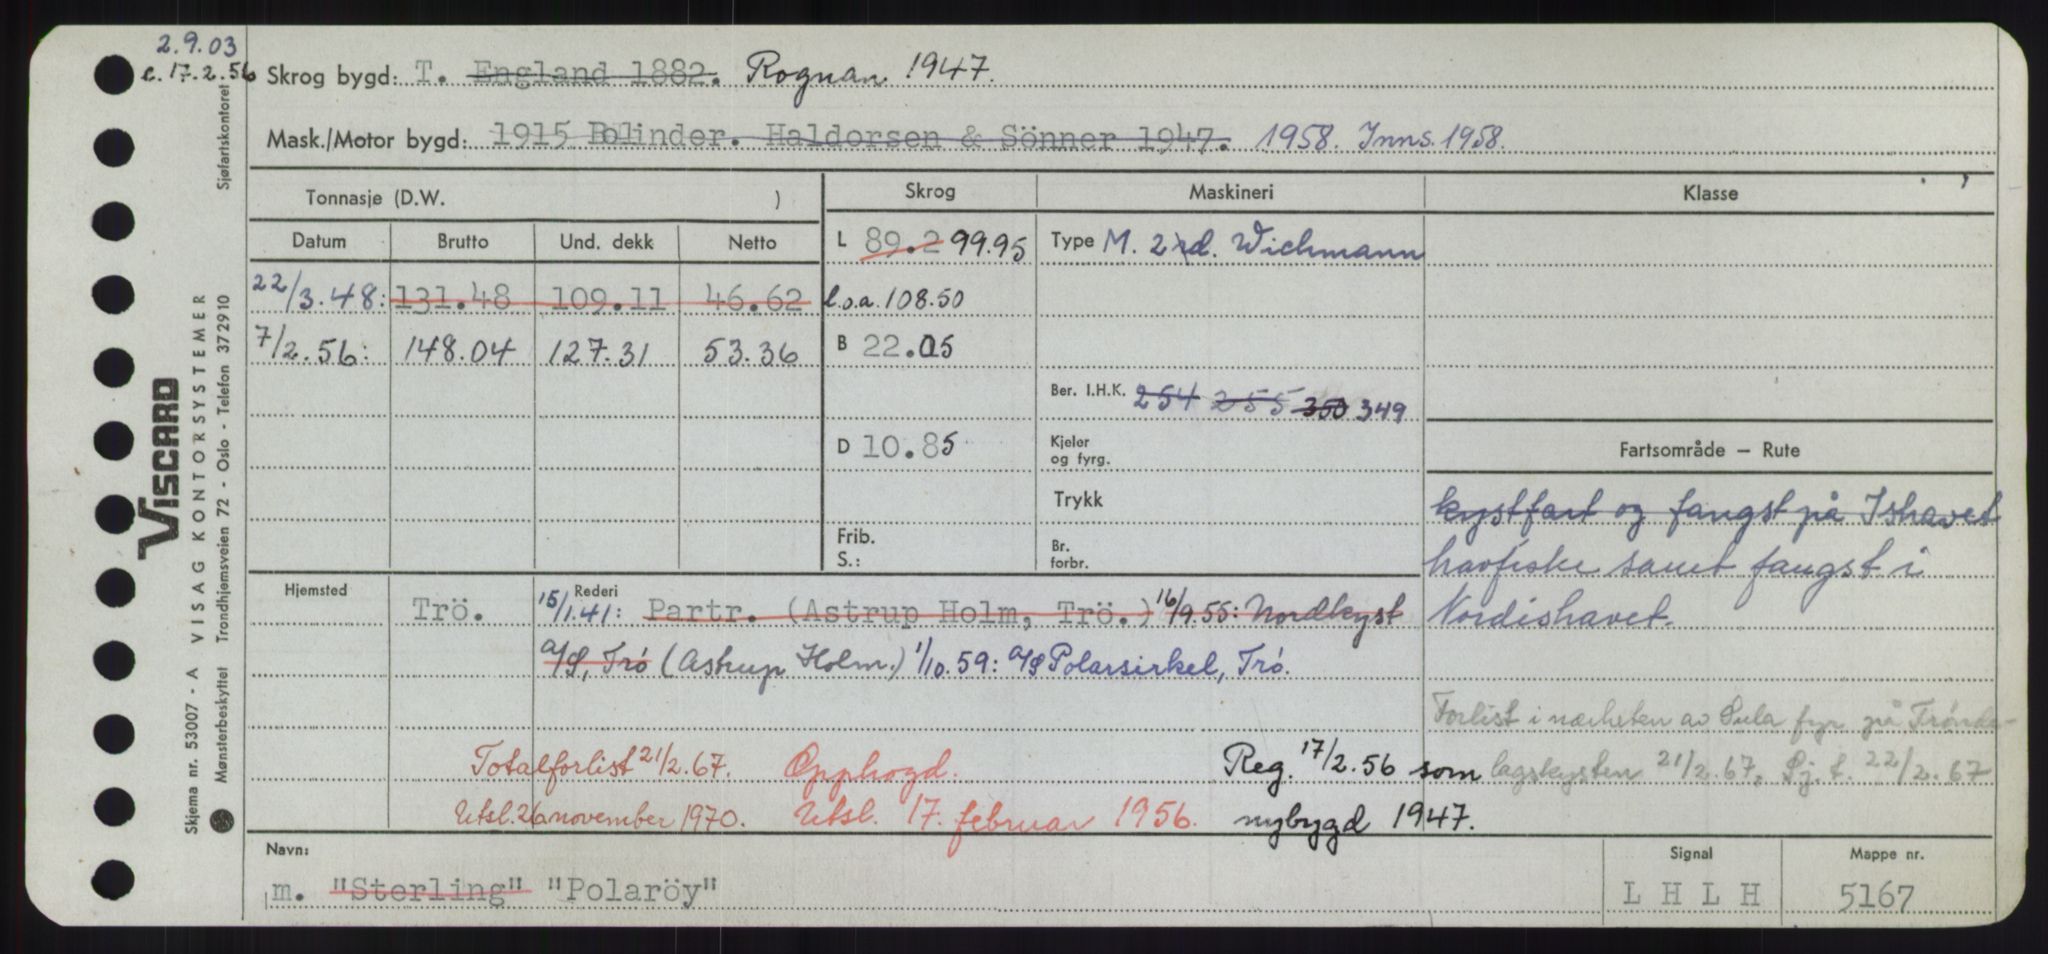 2.9.03
c. 17.2.56 Skrog bygd: T. England 1882. Rognan 1947.
Mask./Motor bygd: 1915 Bolinder. Haldorsen & Sönner 1947. 1958. Inns. 1958.
Tonnasje (D.W. ) Skrog Maskineri Klasse
Datum Brutto Und. dekk Netto L 89.2 99.95 Type M. 2 d. Wichmann
22/3.48: 131.48 109.11 46.62 l.o.a. 108.50
7/2.56: 148.04 127.31 53.36 B 22.05
Ber. I.H.K. 254 255 350 349
D 10.85 Kjeler og fyrg. Fartsområde — Rute
Trykk kystfart og fangst på Ishavet
Frib.
S.: Br. forbr. havfiske samt fangst i
Hjemsted Trö. Rederi 15/1.41: Partr. (Astrup Holm, Trö.) 16/9.55: Nordkyst Nordishavet.
A/S, Trö (Astrup Holm.) 1/10.59: A/S Polarsirkel, Trö.
Forlist i nærheten av Sula fyr på Trønde-
Totalforlist 21/2.67. Opphogd. Reg. 17/2.56 som lagskysten 21/2 67, Sj.t. 22/2.67
Utsl. 26 november 1970. Utsl. 17. februar 1956. nybygd 1947.
Navn: Signal Mappe nr.
m. "Sterling" "Polaröy" L H L H 5167
Skjema nr. 53007 - A VISAG KONTORSYSTEMER
VISCARD
Mønsterbeskyttet Trondhjemsveien 72 - Oslo - Telefon 37 29 10 Sjøfartskontoret